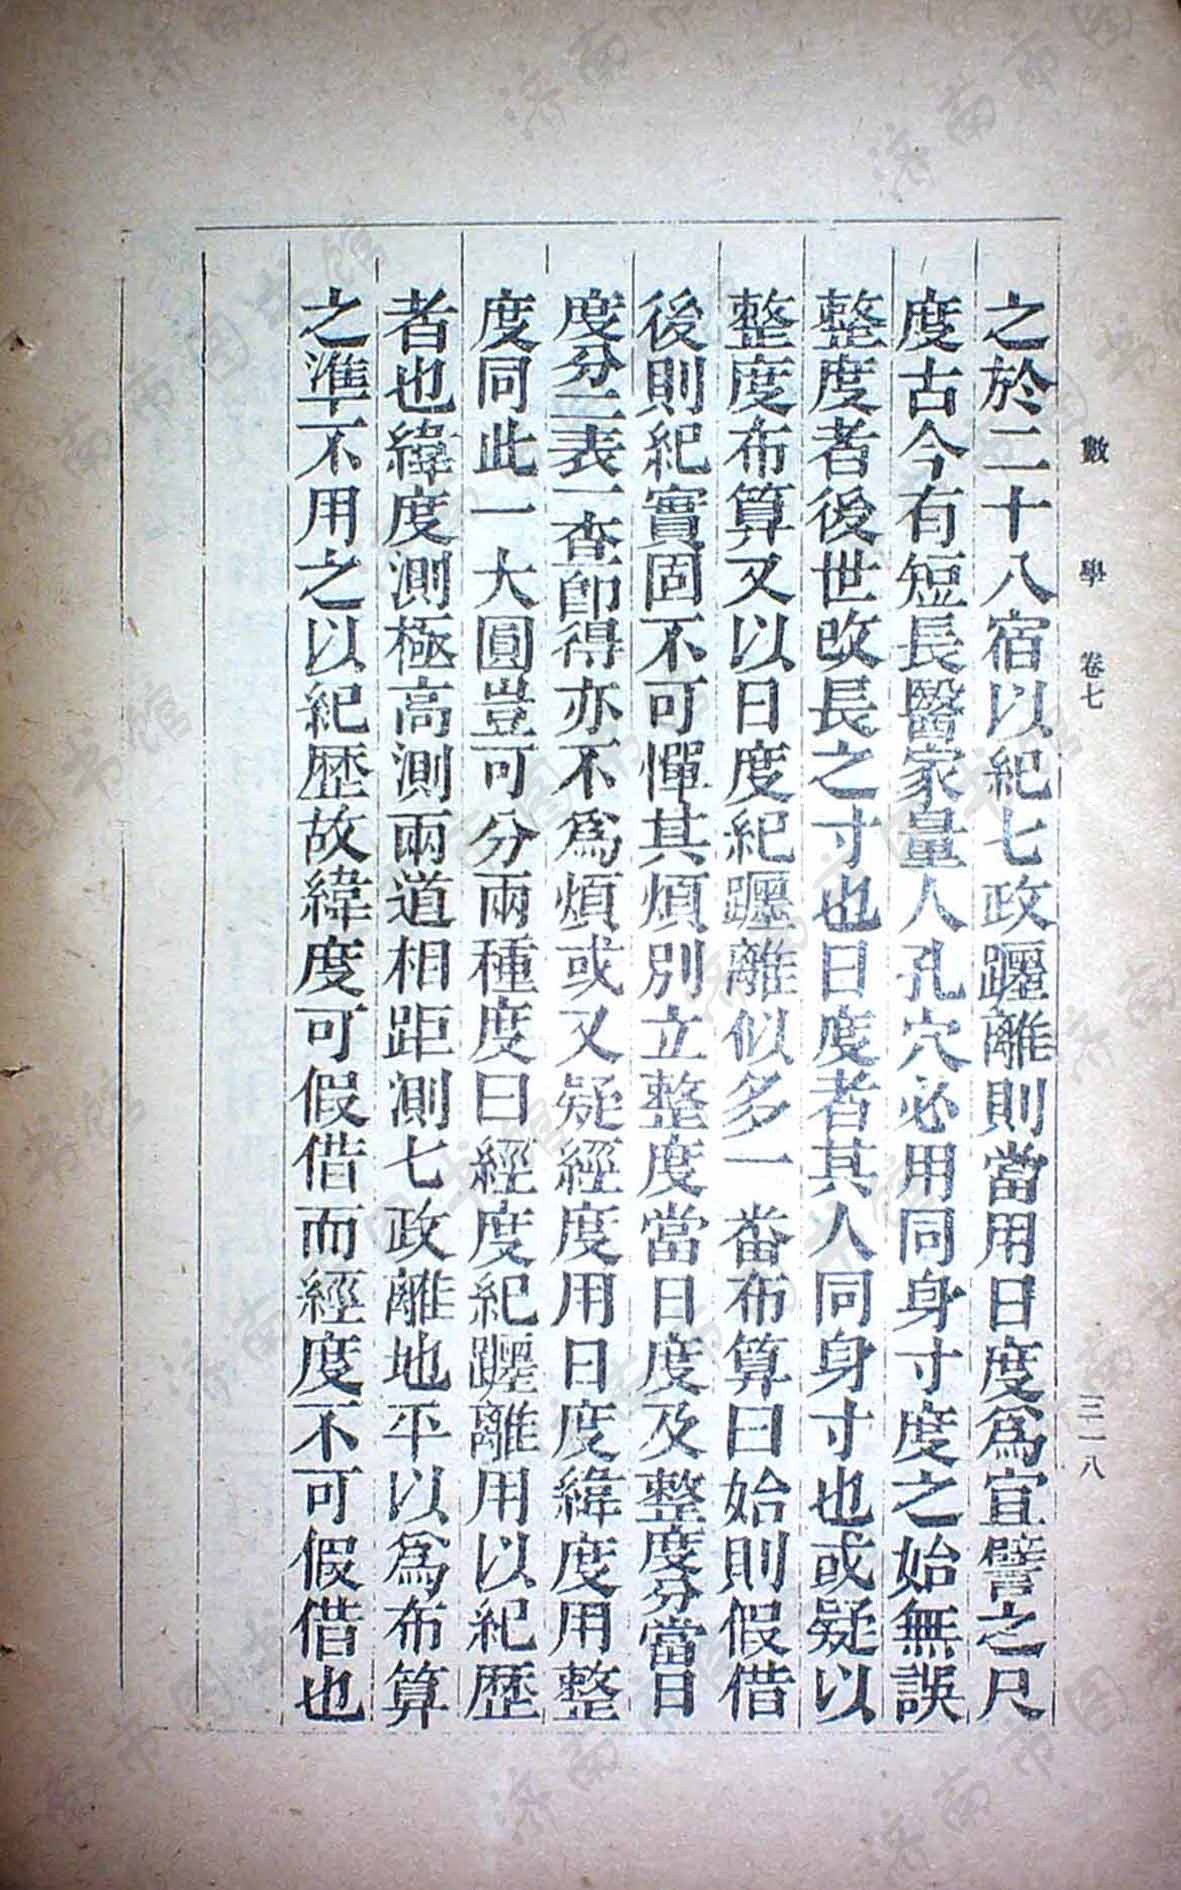 數學 卷七 三一八
之於二十八宿以紀七政躔離則當用日度爲宜譬之尺
度古今有短長醫家量人孔穴必用同身寸度之始無誤
整度者後世改長之寸也日度者其人同身寸也或疑以
整度布算又以日度紀躔離似多一番布算曰始則假借
後則紀實固不可憚其煩別立整度當日度及整度分當日
度分二表一查卽得亦不爲煩或又疑經度用日度緯度用整
度同此一大圓豈可分兩種度曰經度紀躔離用以紀歷
者也緯度測極高測兩道相距測七政離地平以爲布算
之準不用之以紀歷故緯度可假借而經度不可假借也
濟南市图书馆